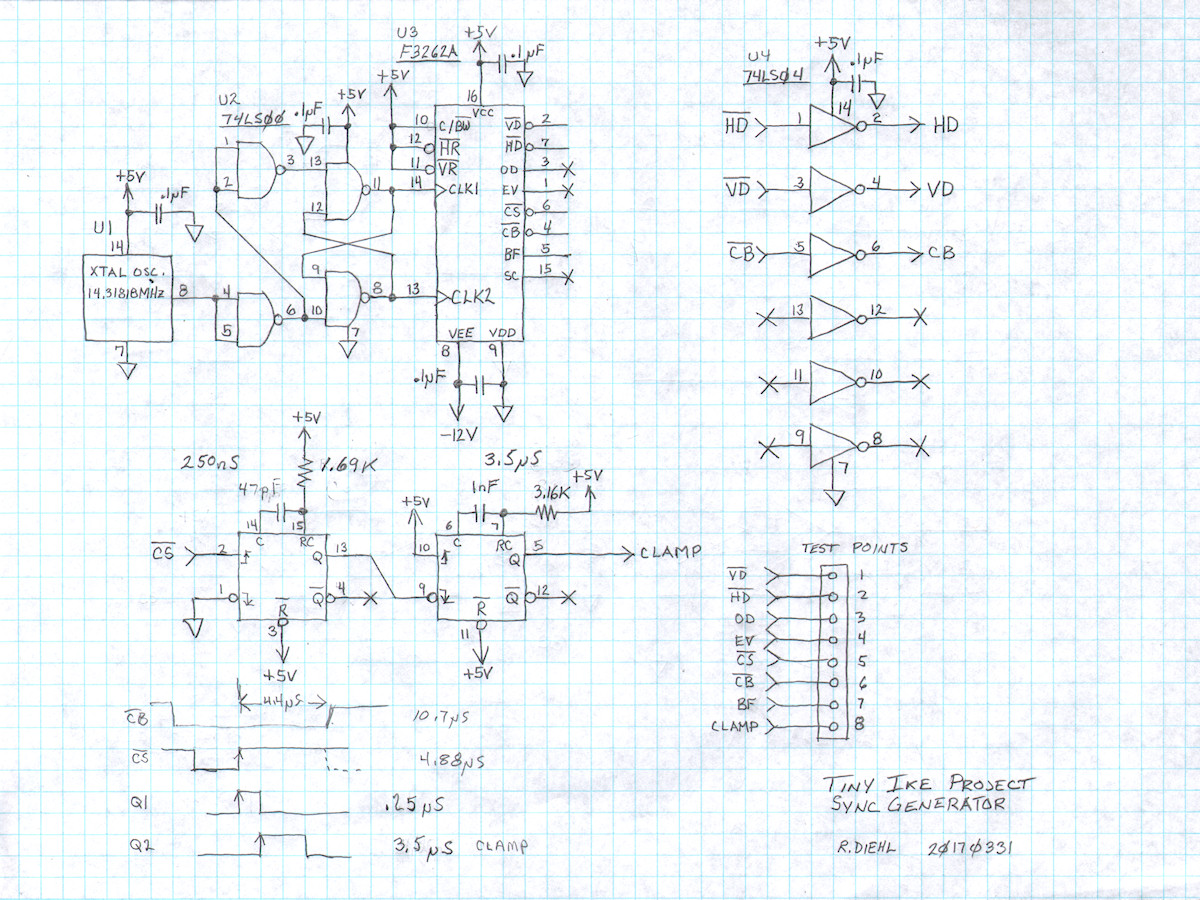 U3
F3262A
+5V
.1µF
16
VCC
+5V
10
C/B̅W̅
12
H̅R̅
11
V̅R̅
14
CLK1
13
CLK2
V̅D̅ 2
H̅D̅ 7
OD 3
EV 1
C̅S̅ 6
C̅B̅ 4
BF 5
SC 15
VEE VDD
8 9
.1µF
-12V
U2
74LSØØ
.1µF
+5V
1
2
3
13
12
11
9
10
8
7
4
5
6
+5V
.1µF
U1
14
XTAL OSC.
14.31818MHz
8
7
U4
74LSØ4
+5V
.1µF
14
H̅D̅ 1 2 HD
V̅D̅ 3 4 VD
C̅B̅ 5 6 CB
13 12
11 10
9 8
7
250nS
+5V
1.69K
47pF
14 15
C RC
C̅S̅ 2
Q 13
1
Q̅ 4
R̅
3
+5V
3.5µS
+5V
1nF
3.16K
+5V
6 7
C RC
10
Q 5
CLAMP
9
Q̅ 12
R̅
11
+5V
TEST POINTS
V̅D̅ 1
H̅D̅ 2
OD 3
EV 4
C̅S̅ 5
C̅B̅ 6
BF 7
CLAMP 8
4.4µS
C̅B̅ 10.7µS
C̅S̅ 4.88µS
Q1 .25µS
Q2 3.5µS CLAMP
TINY IKE PROJECT
SYNC GENERATOR
R.DIEHL 2Ø17Ø331